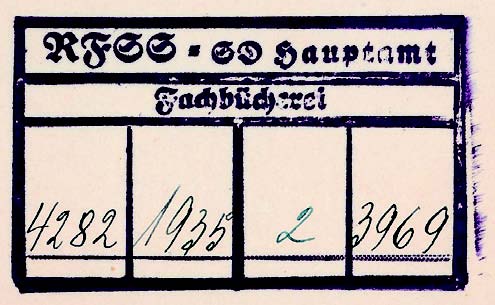 RFSS - SD Hauptamt
Fachbücherei
4282 1935 2 3969